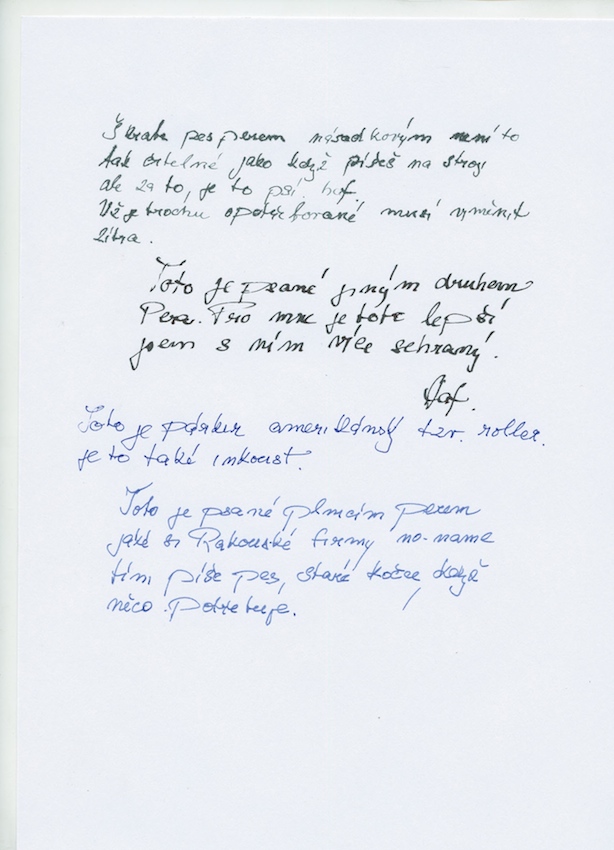 Škrabe pes perem násadkovým není to
tak čitelné jako když píšeš na stroji
ale za to, je to psí. haf.
Už je trochu opotřebované musí vyměnit
zítra.
Toto je psané jiným druhem
Pera. Pro mne je toto lepší
jsem s ním více sehraný.
Haf.
Toto je párker amerikánský tzv. roller.
je to také inkoust.
Toto je psané plnicím perem
jaké si Rakouské firmy no-name
tím píše pes, staré kočce, když
něco potřebuje.